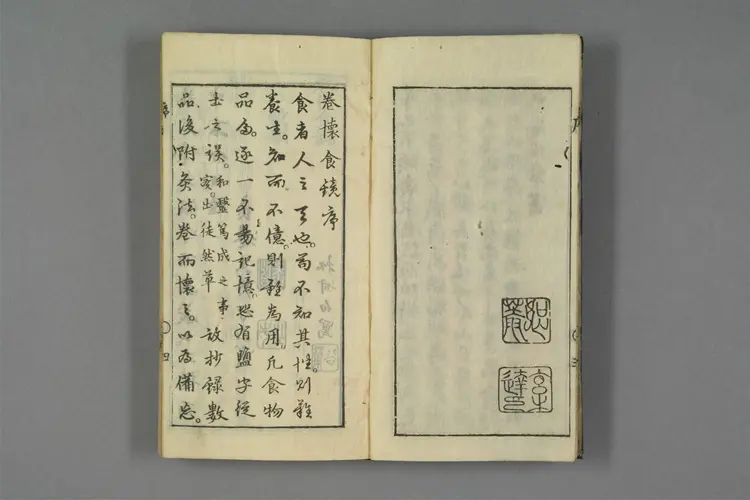 卷懷食鏡序
食者人之天也。苟不知其性。則難
養生。知而不億。則難為用。凡食物
品多。逐一不易記憶。有鹽字從
土之誤。和醫篤成之事 出徒然草 故抄録數
品後附灸法。卷而懷之。以為備忘。
序
四